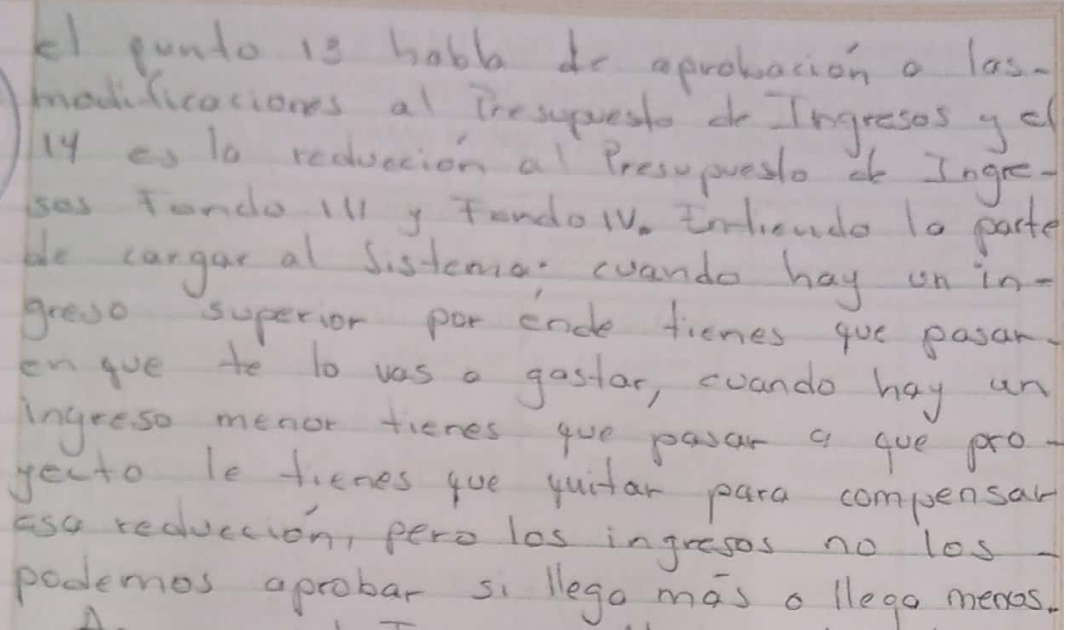 el punto 13 habla de aprobación a las-
modificaciones al Presupuesto de Ingresos y el
14 es la reducción al Presupuesto de Ingre-
sos Fondo III y Fondo IV. Entiendo la parte
de cargar al Sistema. cuando hay un in-
greso superior por énde tienes que pasar-
en que te lo vas a gastar, cuando hay un
ingreso menor tienes que pasar a que pro-
yecto le tienes que quitar para compensar
esa reducción, pero los ingresos no los -
podemos aprobar si llega más o llega menos.